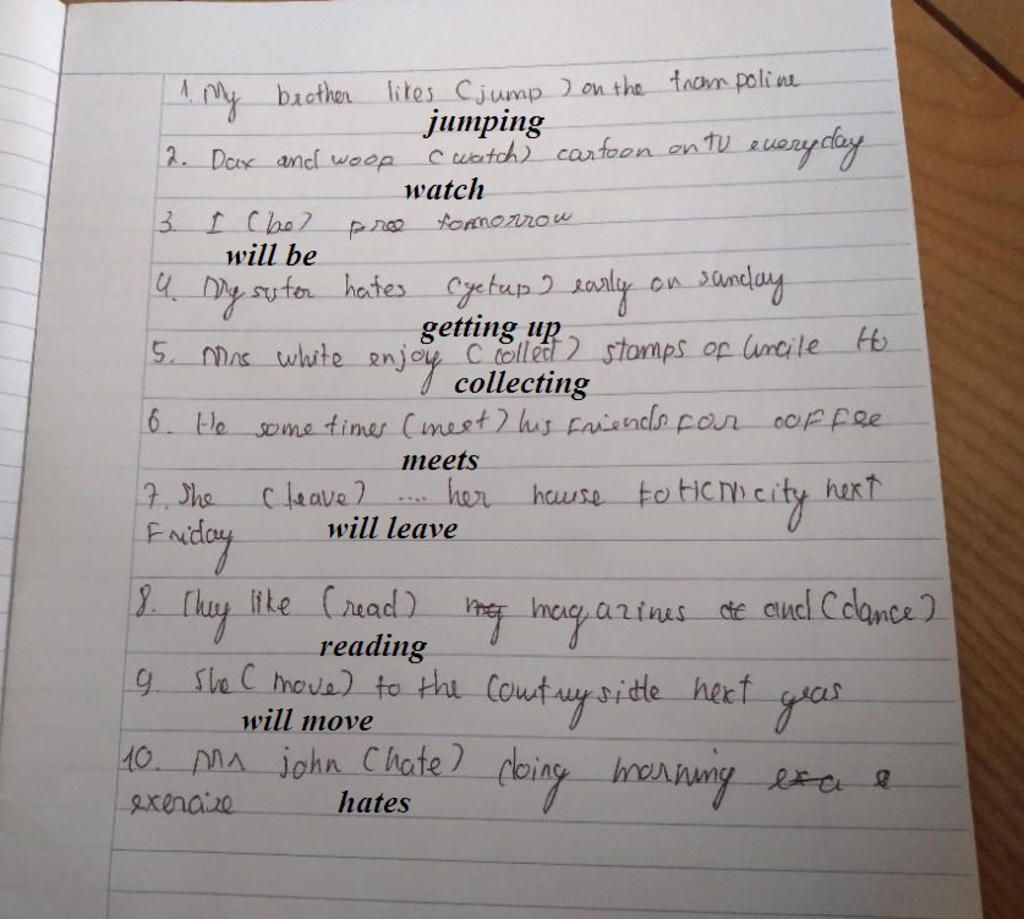 1. My brother likes (jump) on the trampoline
jumping
2. Dax and woop (watch) cartoon on TV everyday
watch
3. I (be) free tomorrow
will be
4. My sister hates (getup) early on sanday
getting up
5. Mrs white enjoy (collect) stamps of Uncile Ho
collecting
6. He some times (meet) his friends for coffee
meets
7. She (leave) .... her house to HCM city next
Friday will leave
8. They like (read) magazines and (dance)
reading
9. She (move) to the Countryside next year
will move
10. Mr john (hate) doing morning
exercise hates